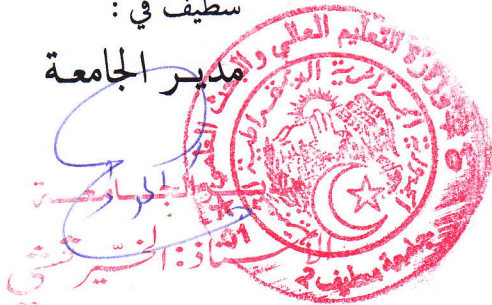 سطيف في :
مدير الجامعة
وزارة التعليم العالي والبحث
الجزائرية الديمقراطية
جامعة سطيف 2
مدير الجامعة
الأستاذ: الخير قشي